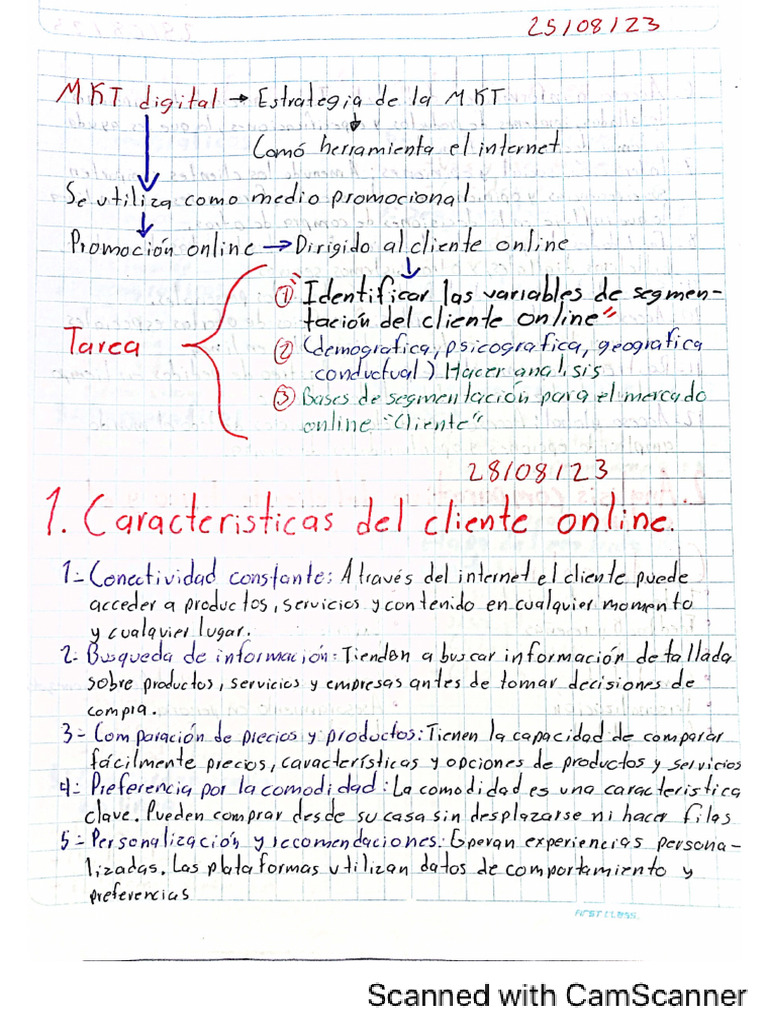 25/08/23
MKT digital → Estrategia de la MKT
Comó herramienta el internet
Se utiliza como medio promocional
Promoción online → Dirigido al cliente online
Tarea
① "Identificar las variables de segmen-
tación del cliente online"
② (demografica, psicografica, geografica
conductual) Hacer analisis
③ Bases de segmentación para el mercado
online "Cliente"
28/08/23
1. Caracteristicas del cliente online.
1- Conectividad constante: A través del internet el cliente puede
acceder a productos, servicios y contenido en cualquier momento
y cualquier lugar.
2- Busqueda de información: Tienden a buscar información detallada
sobre productos, servicios y empresas antes de tomar decisiones de
compra.
3- Comparación de precios y productos: Tienen la capacidad de comparar
fácilmente precios, características y opciones de productos y servicios
4- Preferencia por la comodidad: La comodidad es una caracteristica
clave. Pueden comprar desde su casa sin desplazarse ni hacer filas
5- Personalización y recomendaciones: Esperan experiencias persona-
lizadas. Las plataformas utilizan datos de comportamiento y
preferencias
FIRST CLASS.
Scanned with CamScanner